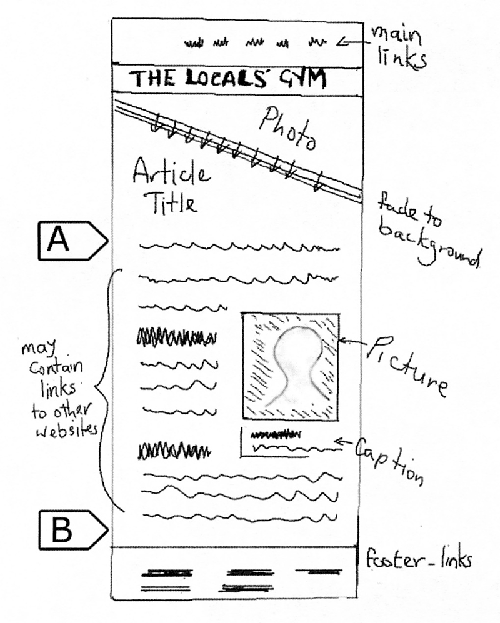 main
links
THE LOCALS' GYM
Photo
Article
Title
fade to
background
A
may
contain
links
to other
websites
Picture
Caption
B
footer-links